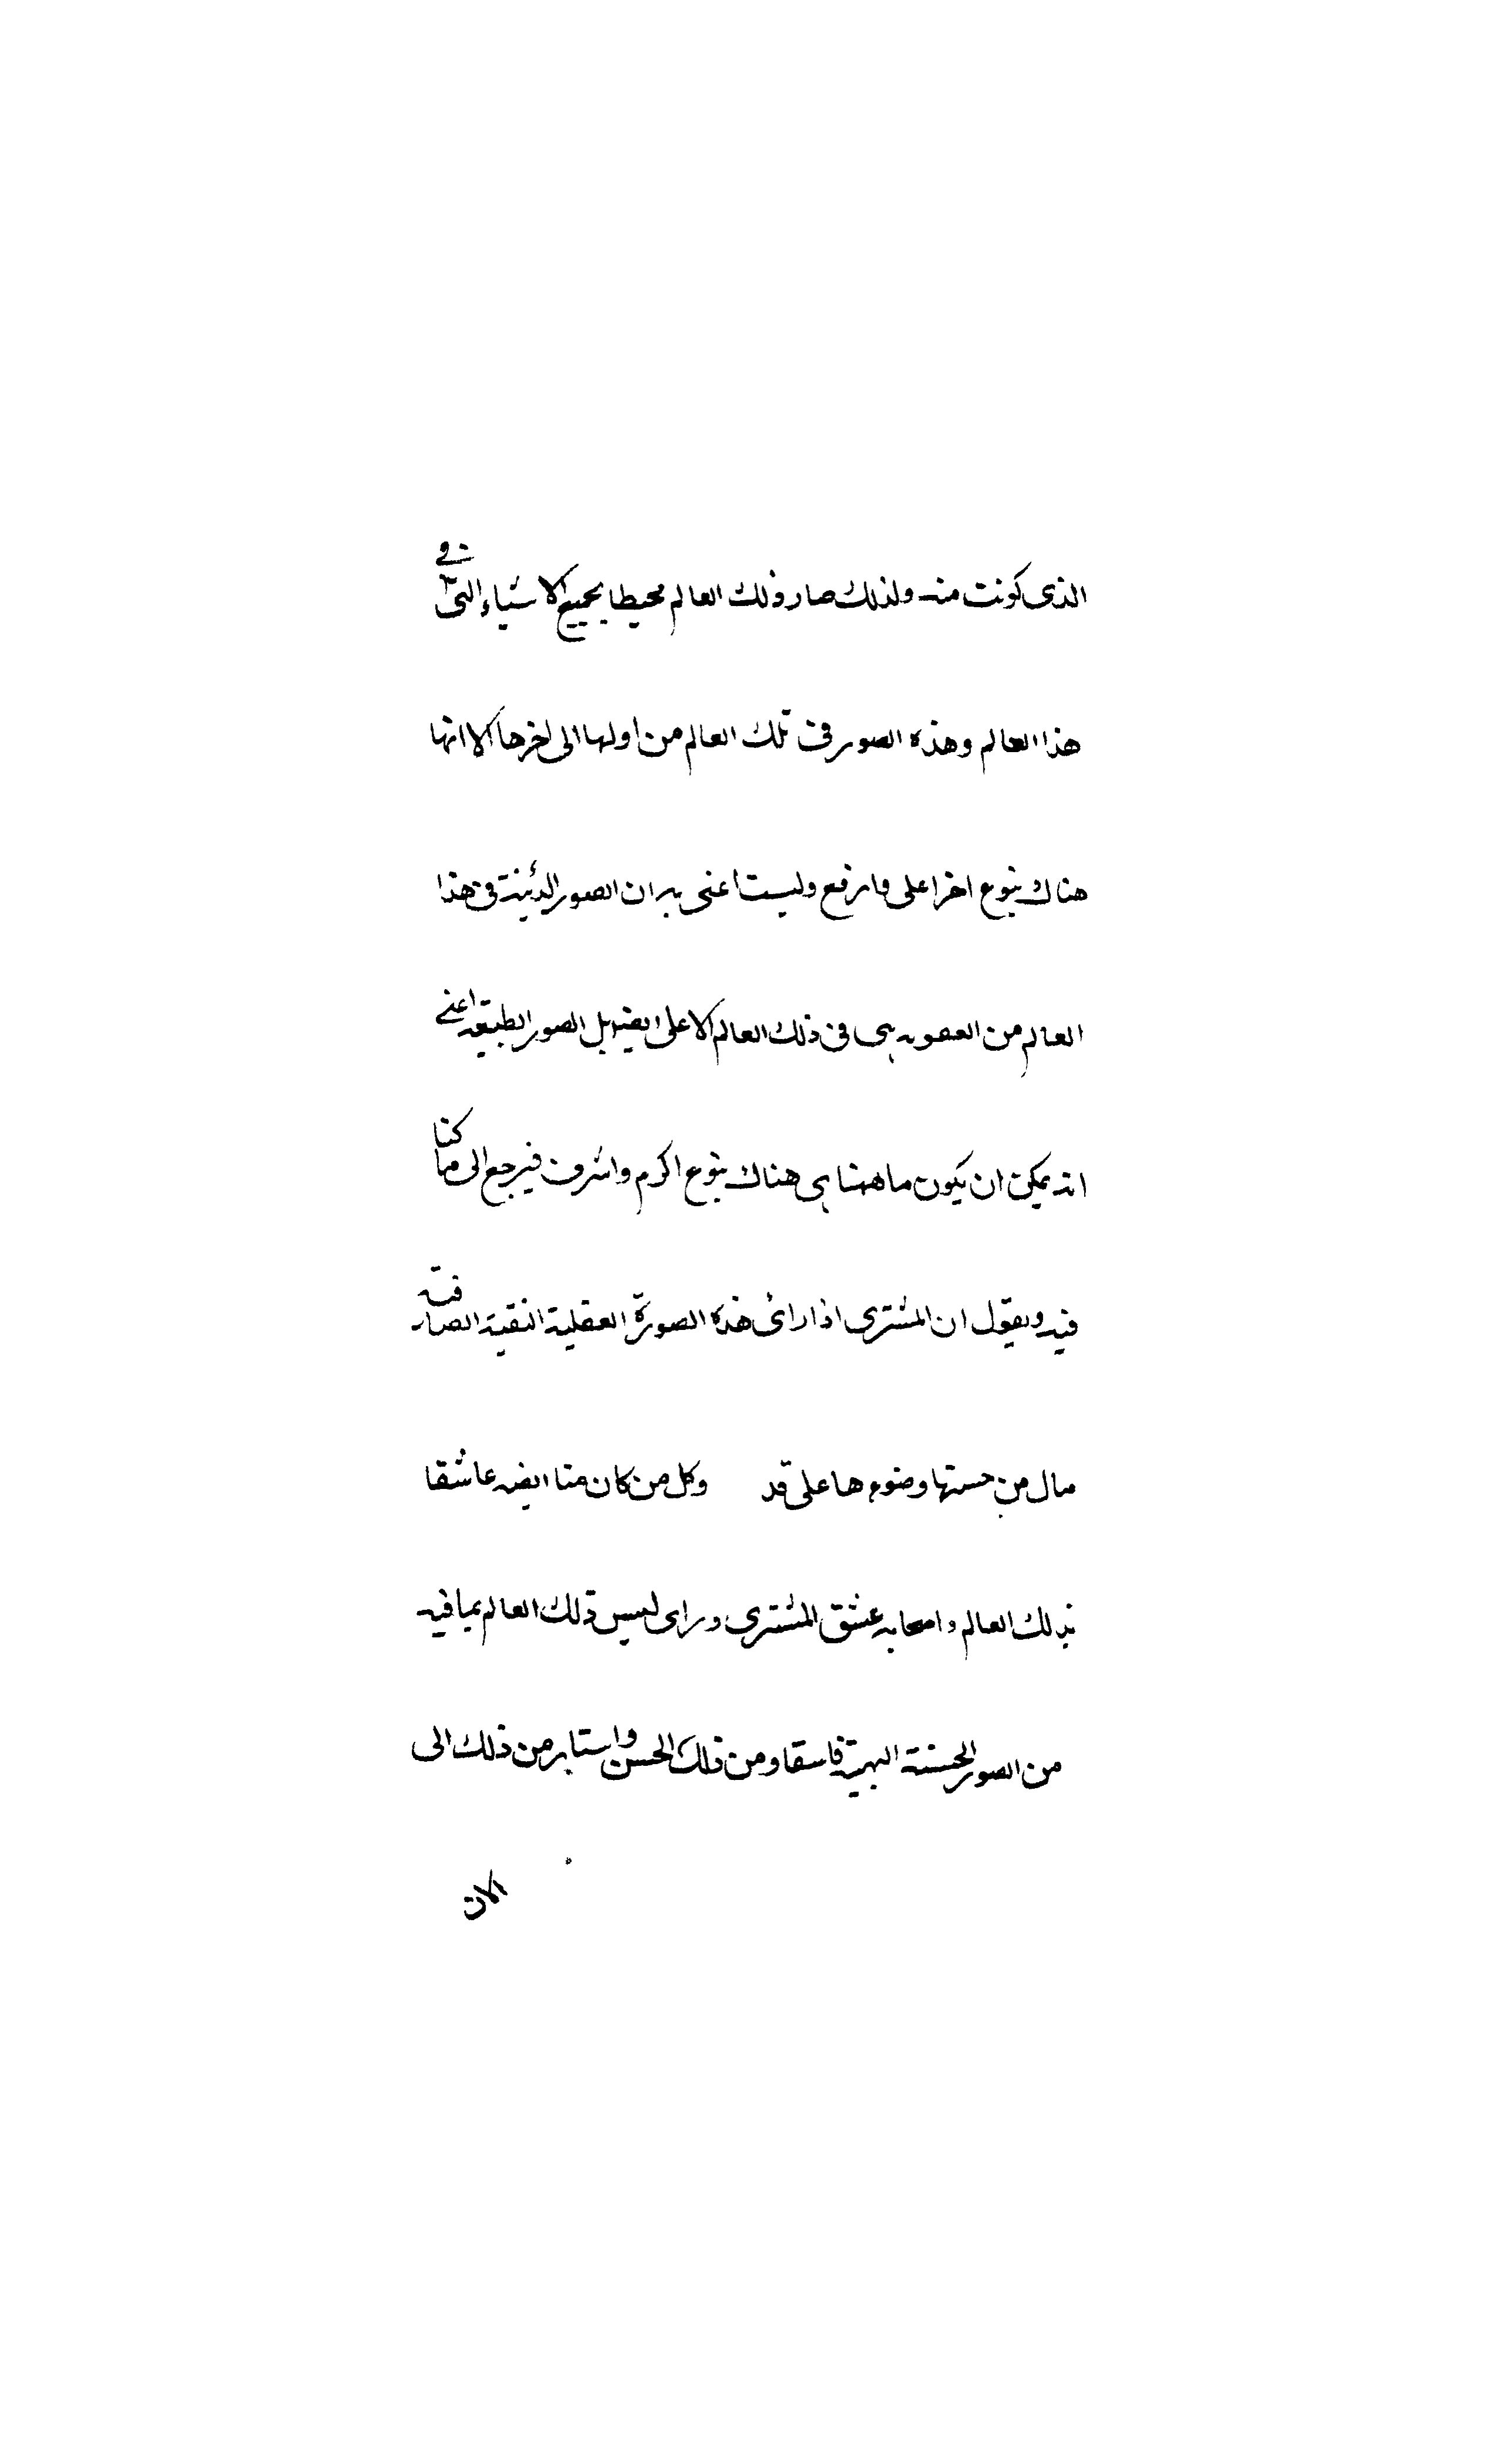 الذى كونت منه ولذلك صار ذلك العالم محيطا بجميع الاشياء التى فى
هذا العالم وهذه الصور فى تلك العالم من اولها الى اخرها الا انها
هناك بنوع اخر اعلى وارفع وليست اعنى به ان الصور الدنية فى هذا
العالم من العفونه هى فى ذلك العالم الاعلى ايضا بل الصور الطبيعه اعنى
انه يمكن ان يكون ما ههنا هى هناك بنوع اكرم واشرف فيرجع الى ما كنا
فيه ويقول ان المشترى اذا راى هذه الصورة العقلية النقية الصافية
مال من حسنها وضوءها على قد وكل من كان منا ايضه عاشقا
بذلك العالم واصحابه عشق المشترى وراى ليس ذلك العالم بما فيه
من الصور الحسنة البهية فاسقا ومن ذلك الحسن واستا من ذلك الى
الان